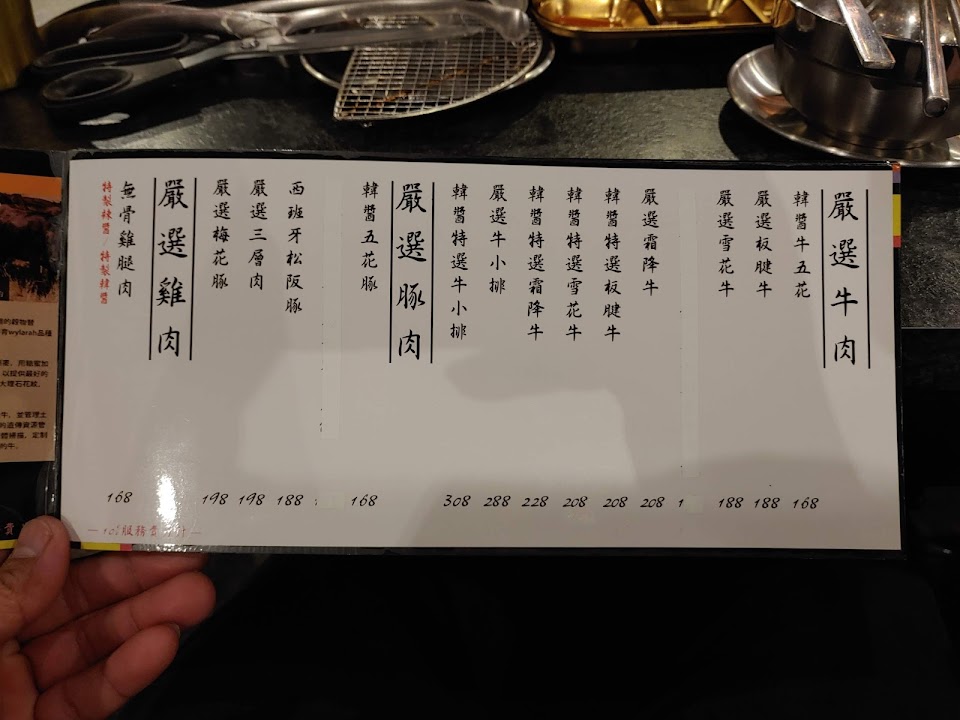 嚴選牛肉
韓醬牛五花 168
嚴選板腱牛 188
嚴選雪花牛 188
嚴選霜降牛 208
韓醬特選板腱牛 208
韓醬特選雪花牛 208
韓醬特選霜降牛 228
嚴選牛小排 288
韓醬特選牛小排 308
嚴選豚肉
韓醬五花豚 168
西班牙松阪豚 188
嚴選三層肉 198
嚴選梅花豚 198
嚴選雞肉
無骨雞腿肉 168
特製辣醬/特製韓醬
的穀物替
育wylarah品種
以提供最好的
大理石花紋。
的遺傳資源豐
的牛。